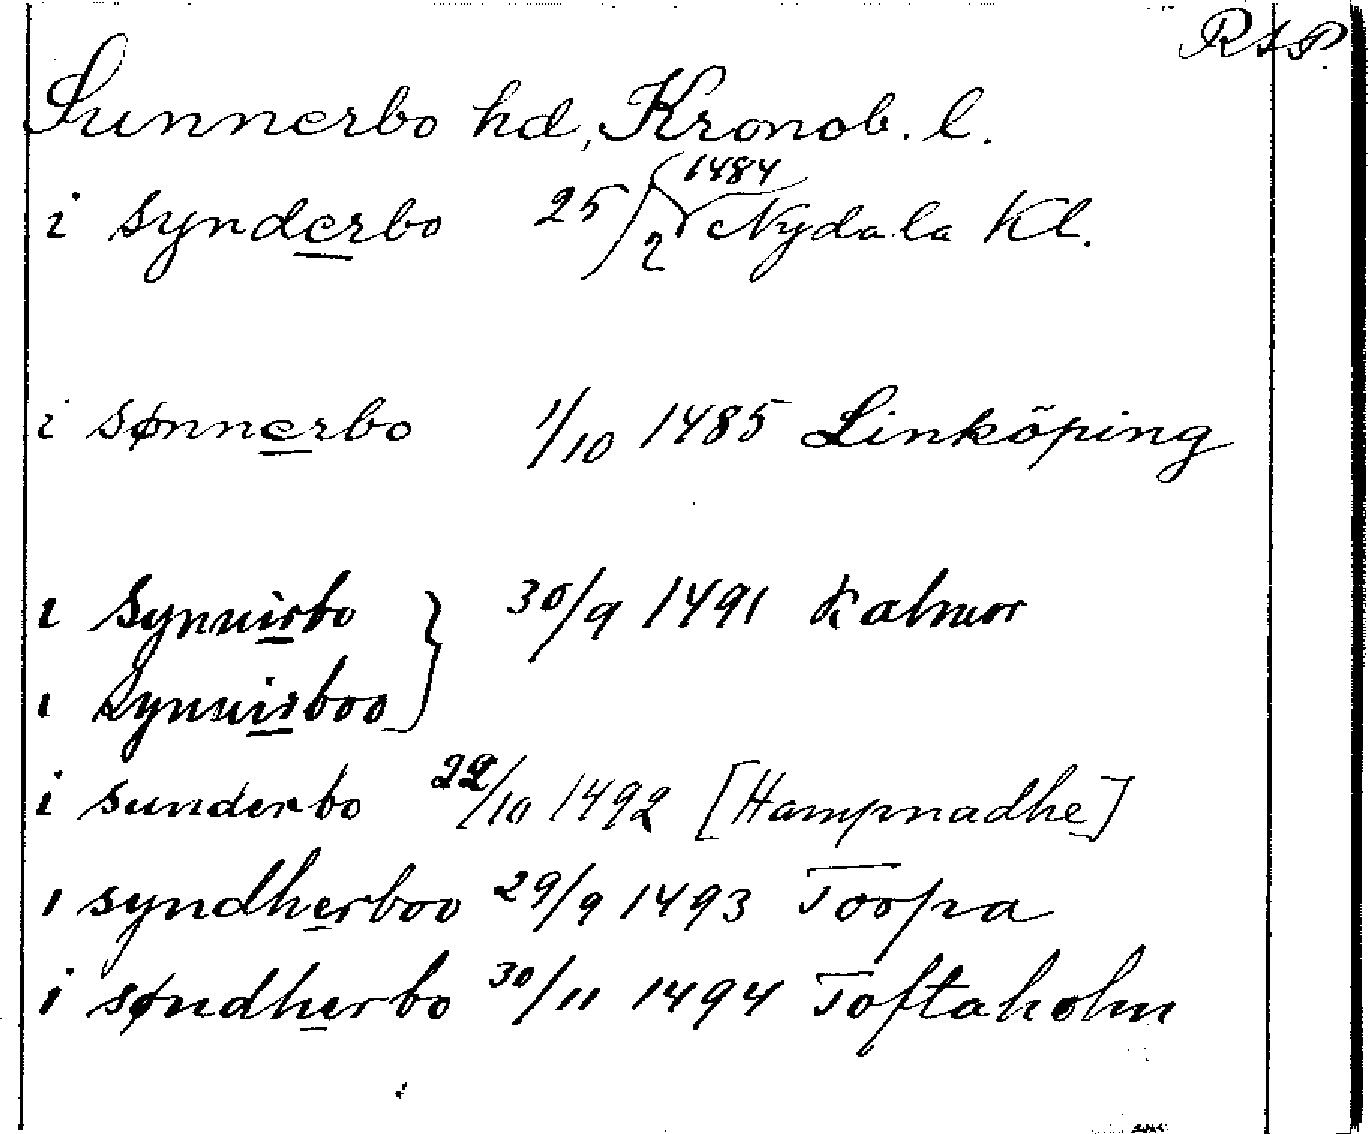 RAP.
Sunnerbo hd, Kronob. l.
i synderbo 25/2 1484 Nydala Kl.
i sønnerbo 1/10 1485 Linköping
i Synnirbo } 30/9 1491 Kalmar
i synnirboo
i sunderbo 22/10 1492 [Hampnadhe]
i syndherboo 29/9 1493 Torpa
i søndherbo 30/11 1494 Toftaholm